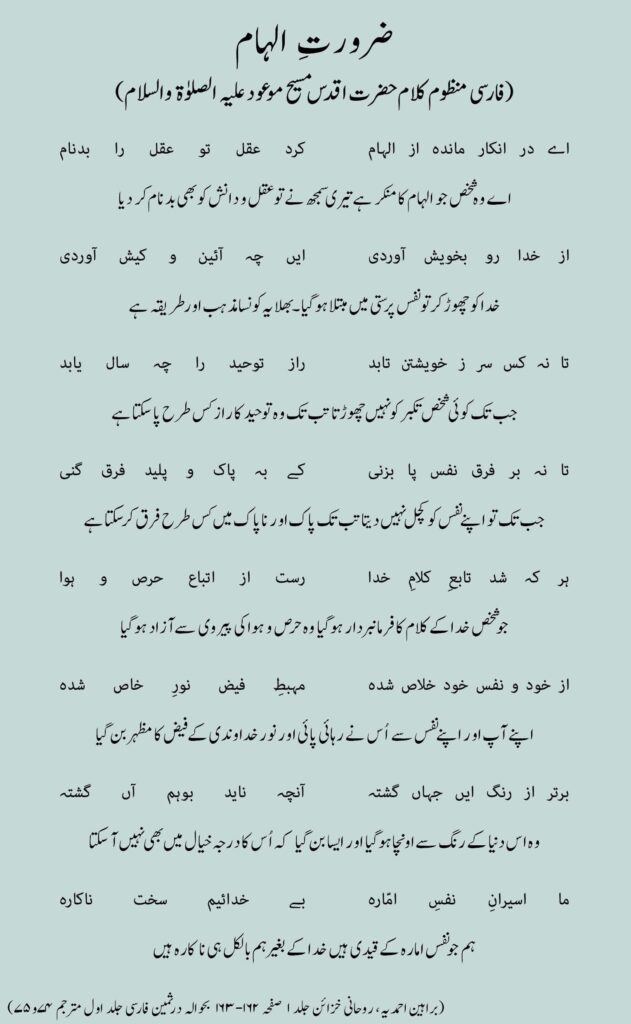 ضرورتِ الہام
(فارسی منظوم کلام حضرت اقدس مسیح موعود علیہ الصلوٰۃ والسلام)
اے در انکار ماندہ از الہام کرد عقل تو عقل را بدنام
اے وہ شخص جو الہام کا منکر ہے تیری سمجھ نے تو عقل و دانش کو بھی بدنام کر دیا
از خدا رو بخویش آوردی ایں چہ آئین و کیش آوردی
خدا کو چھوڑ کر تو نفس پرستی میں مبتلا ہو گیا۔ بھلا یہ کونسا مذہب اور طریقہ ہے
تا نہ کس سر ز خویشتن تابد راز توحید را چہ سال یابد
جب تک کوئی شخص تکبر کو نہیں چھوڑتا تب تک وہ توحید کا راز کس طرح پا سکتا ہے
تا نہ بر فرق نفس پا بزنی کے بہ پاک و پلید فرق گنی
جب تک تو اپنے نفس کو کچل نہیں دیتا تب تک پاک اور ناپاک میں کس طرح فرق کر سکتا ہے
ہر کہ شد تابعِ کلامِ خدا رست از اتباع حرص و ہوا
جو شخص خدا کے کلام کا فرمانبردار ہو گیا وہ حرص و ہوا کی پیروی سے آزاد ہو گیا
از خود و نفس خود خلاص شدہ مہبطِ فیض نورِ خاص شدہ
اپنے آپ اور اپنے نفس سے اُس نے رہائی پائی اور نور خداوندی کے فیض کا مظہر بن گیا
برتر از رنگ ایں جہاں گشتہ آنچہ ناید بوہم آں گشتہ
وہ اس دنیا کے رنگ سے اونچا ہو گیا اور ایسا بن گیا کہ اُس کا درجہ خیال میں بھی نہیں آ سکتا
ما اسیرانِ نفسِ امّارہ بے خدائیم سخت ناکارہ
ہم جو نفس امارہ کے قیدی ہیں خدا کے بغیر ہم بالکل ہی ناکارہ ہیں
(براہین احمدیہ، روحانی خزائن جلد ۱ صفحہ ۱۶۲-۱۶۳ بحوالہ درثمین فارسی جلد اول مترجم ۷۴ و ۷۵)